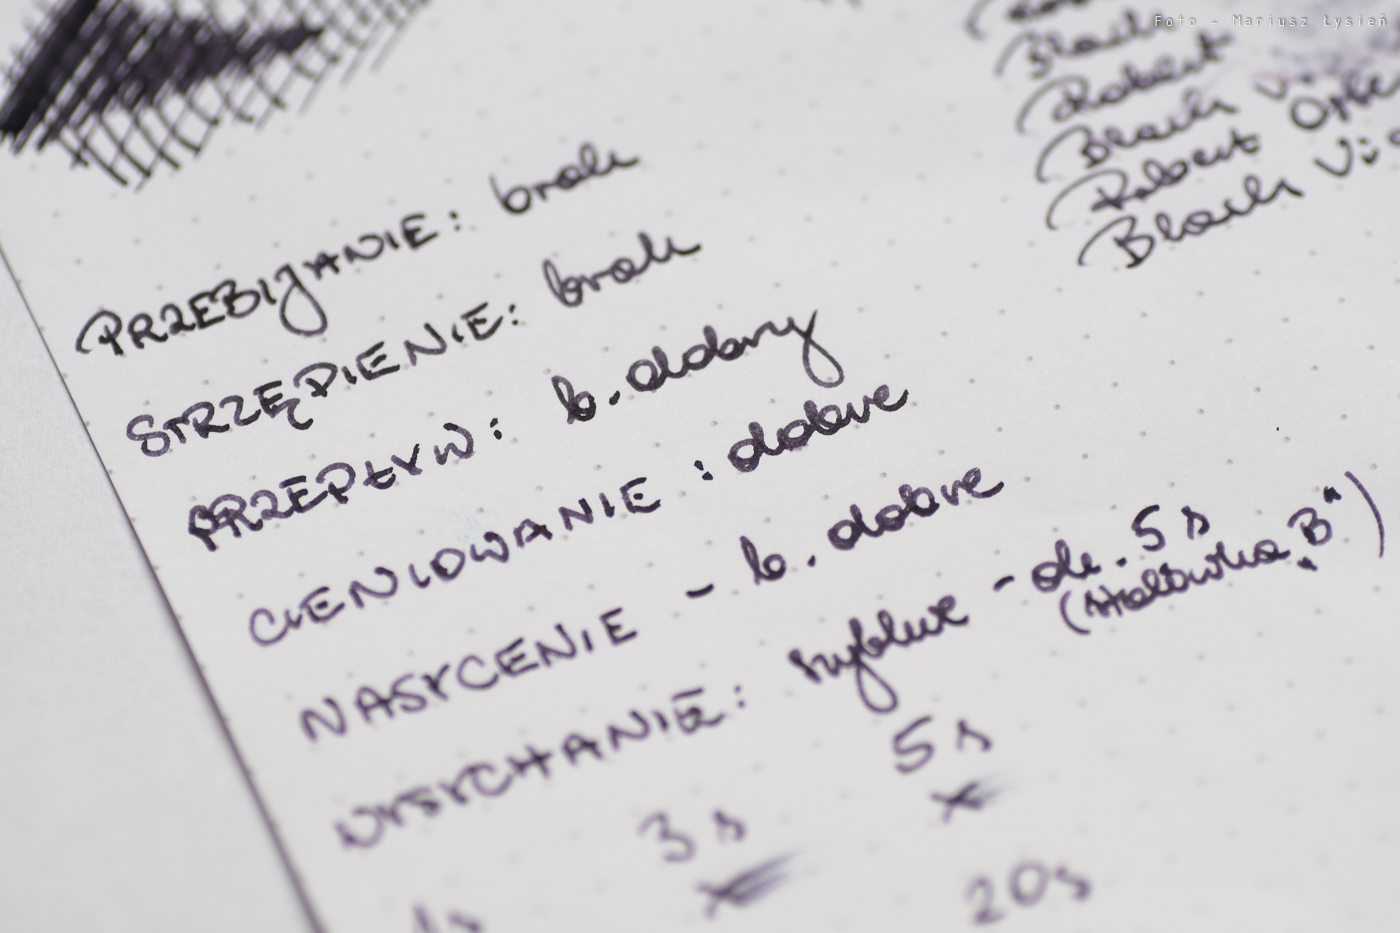 Foto - Mariusz Łysień
Black
Robert
Black
Robert Oster
Black Vi
PRZEBIJANIE: brak
STRZĘPIENIE: brak
PRZEPŁYW: b. dobry
CIENIOWANIE: dobre
NASYCENIE - b. dobre
WYSYCHANIE: szybkie - ok. 5s
(stalówka „B”)
1s 3s 5s
20s